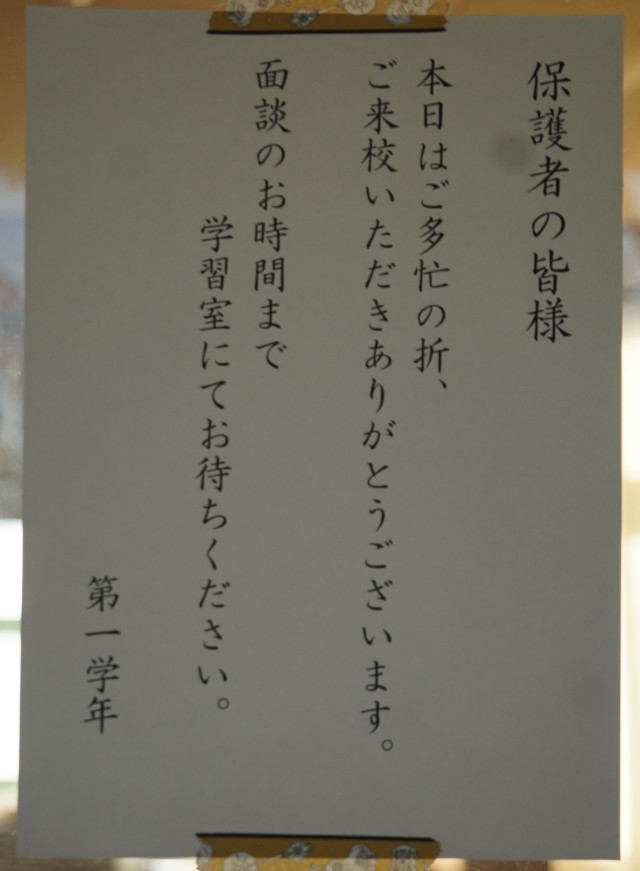 保護者の皆様
本日はご多忙の折、
ご来校いただきありがとうございます。
面談のお時間まで
学習室にてお待ちください。
第一学年